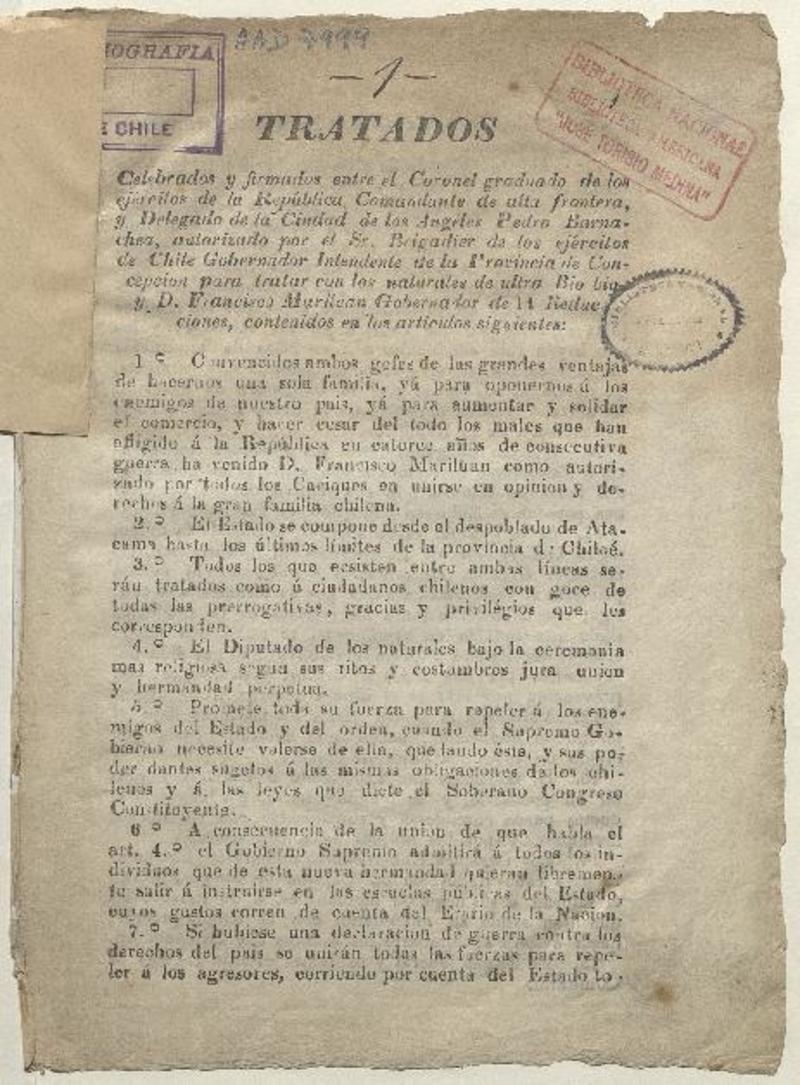 OGRAFIA
E CHILE
AAD 7999
—1—
BIBLIOTECA NACIONAL
BIBLIOTECA AMERICANA
"JOSE TORIBIO MEDINA"
TRATADOS
Celebrados y firmados entre el Coronel graduado de los
ejércitos de la República, Comandante de alta frontera,
y Delegado de la Ciudad de los Angeles Pedro Barna-
chea, autorizado por el Sr. Brigadier de los ejércitos
de Chile Gobernador Intendente de la Provincia de Con-
cepcion para tratar con los naturales de ultra Bio bio
y D. Francisco Mariluan Gobernador de 14 Reduc
ciones, contenidos en los articulos siguientes:
1 º Convencidos ambos gefes de las grandes ventajas
de hacernos una sola familia, yá para oponernos á los
enemigos de nuestro pais, yá para aumentar y solidar
el comercio, y hacer cesar del todo los males que han
afligido á la República en catorce años de consecutiva
guerra ha venido D. Francisco Mariluan como autori-
zado por todos los Caciques en unirse en opinion y de-
rechos á la gran familia chilena.
2.º El Estado se compone desde el despoblado de Ata-
cama hasta los últimos límites de la provincia de Chiloé.
3.º Todos los que ecsisten entre ambas líneas se-
rán tratados como á ciudadanos chilenos con goce de
todas las prerrogativas, gracias y privilégios que les
corresponden.
4.º El Diputado de los naturales bajo la ceremonia
mas religiosa segun sus ritos y costumbres jura union
y hermandad perpetua.
5 º Promete toda su fuerza para repeler á los ene-
migos del Estado y del orden, cuando el Supremo Go-
bierno necesite valerse de ella, quedando éste, y sus po-
der dantes sugetos á las mismas obligaciones de los chi-
lenos y á las leyes que dicte el Soberano Congreso
Constituyente.
6 º A consecuencia de la union de que habla el
art. 4.º el Gobierno Supremo admitirá á todos los in-
dividuos que de esta nueva hermandad quieran libremen-
te salir á instruirse en las escuelas públicas del Estado,
cuyos gastos corren de cuenta del Erario de la Nacion.
7.º Si hubiese una declaracion de guerra contra los
derechos del pais se unirán todas las fuerzas para repe-
ler á los agresores, corriendo por cuenta del Estado to-